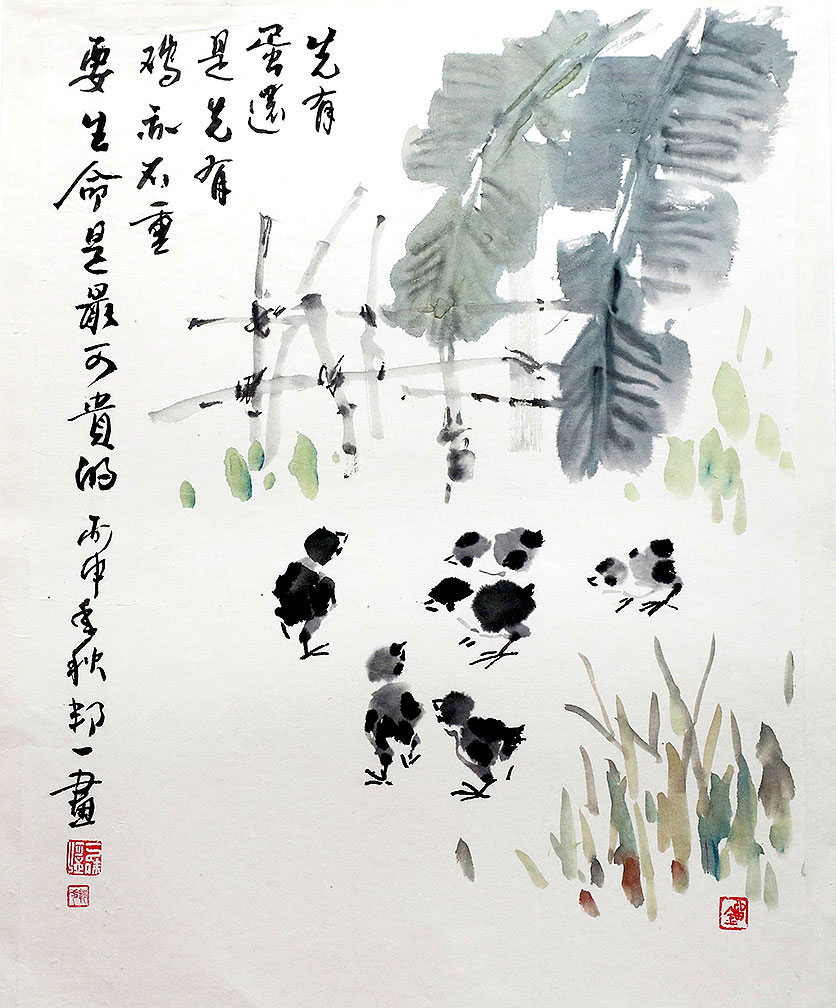 先有
蛋還
是先有
鸡亦不重
要生命是最可貴的 丙申秋邦一畫